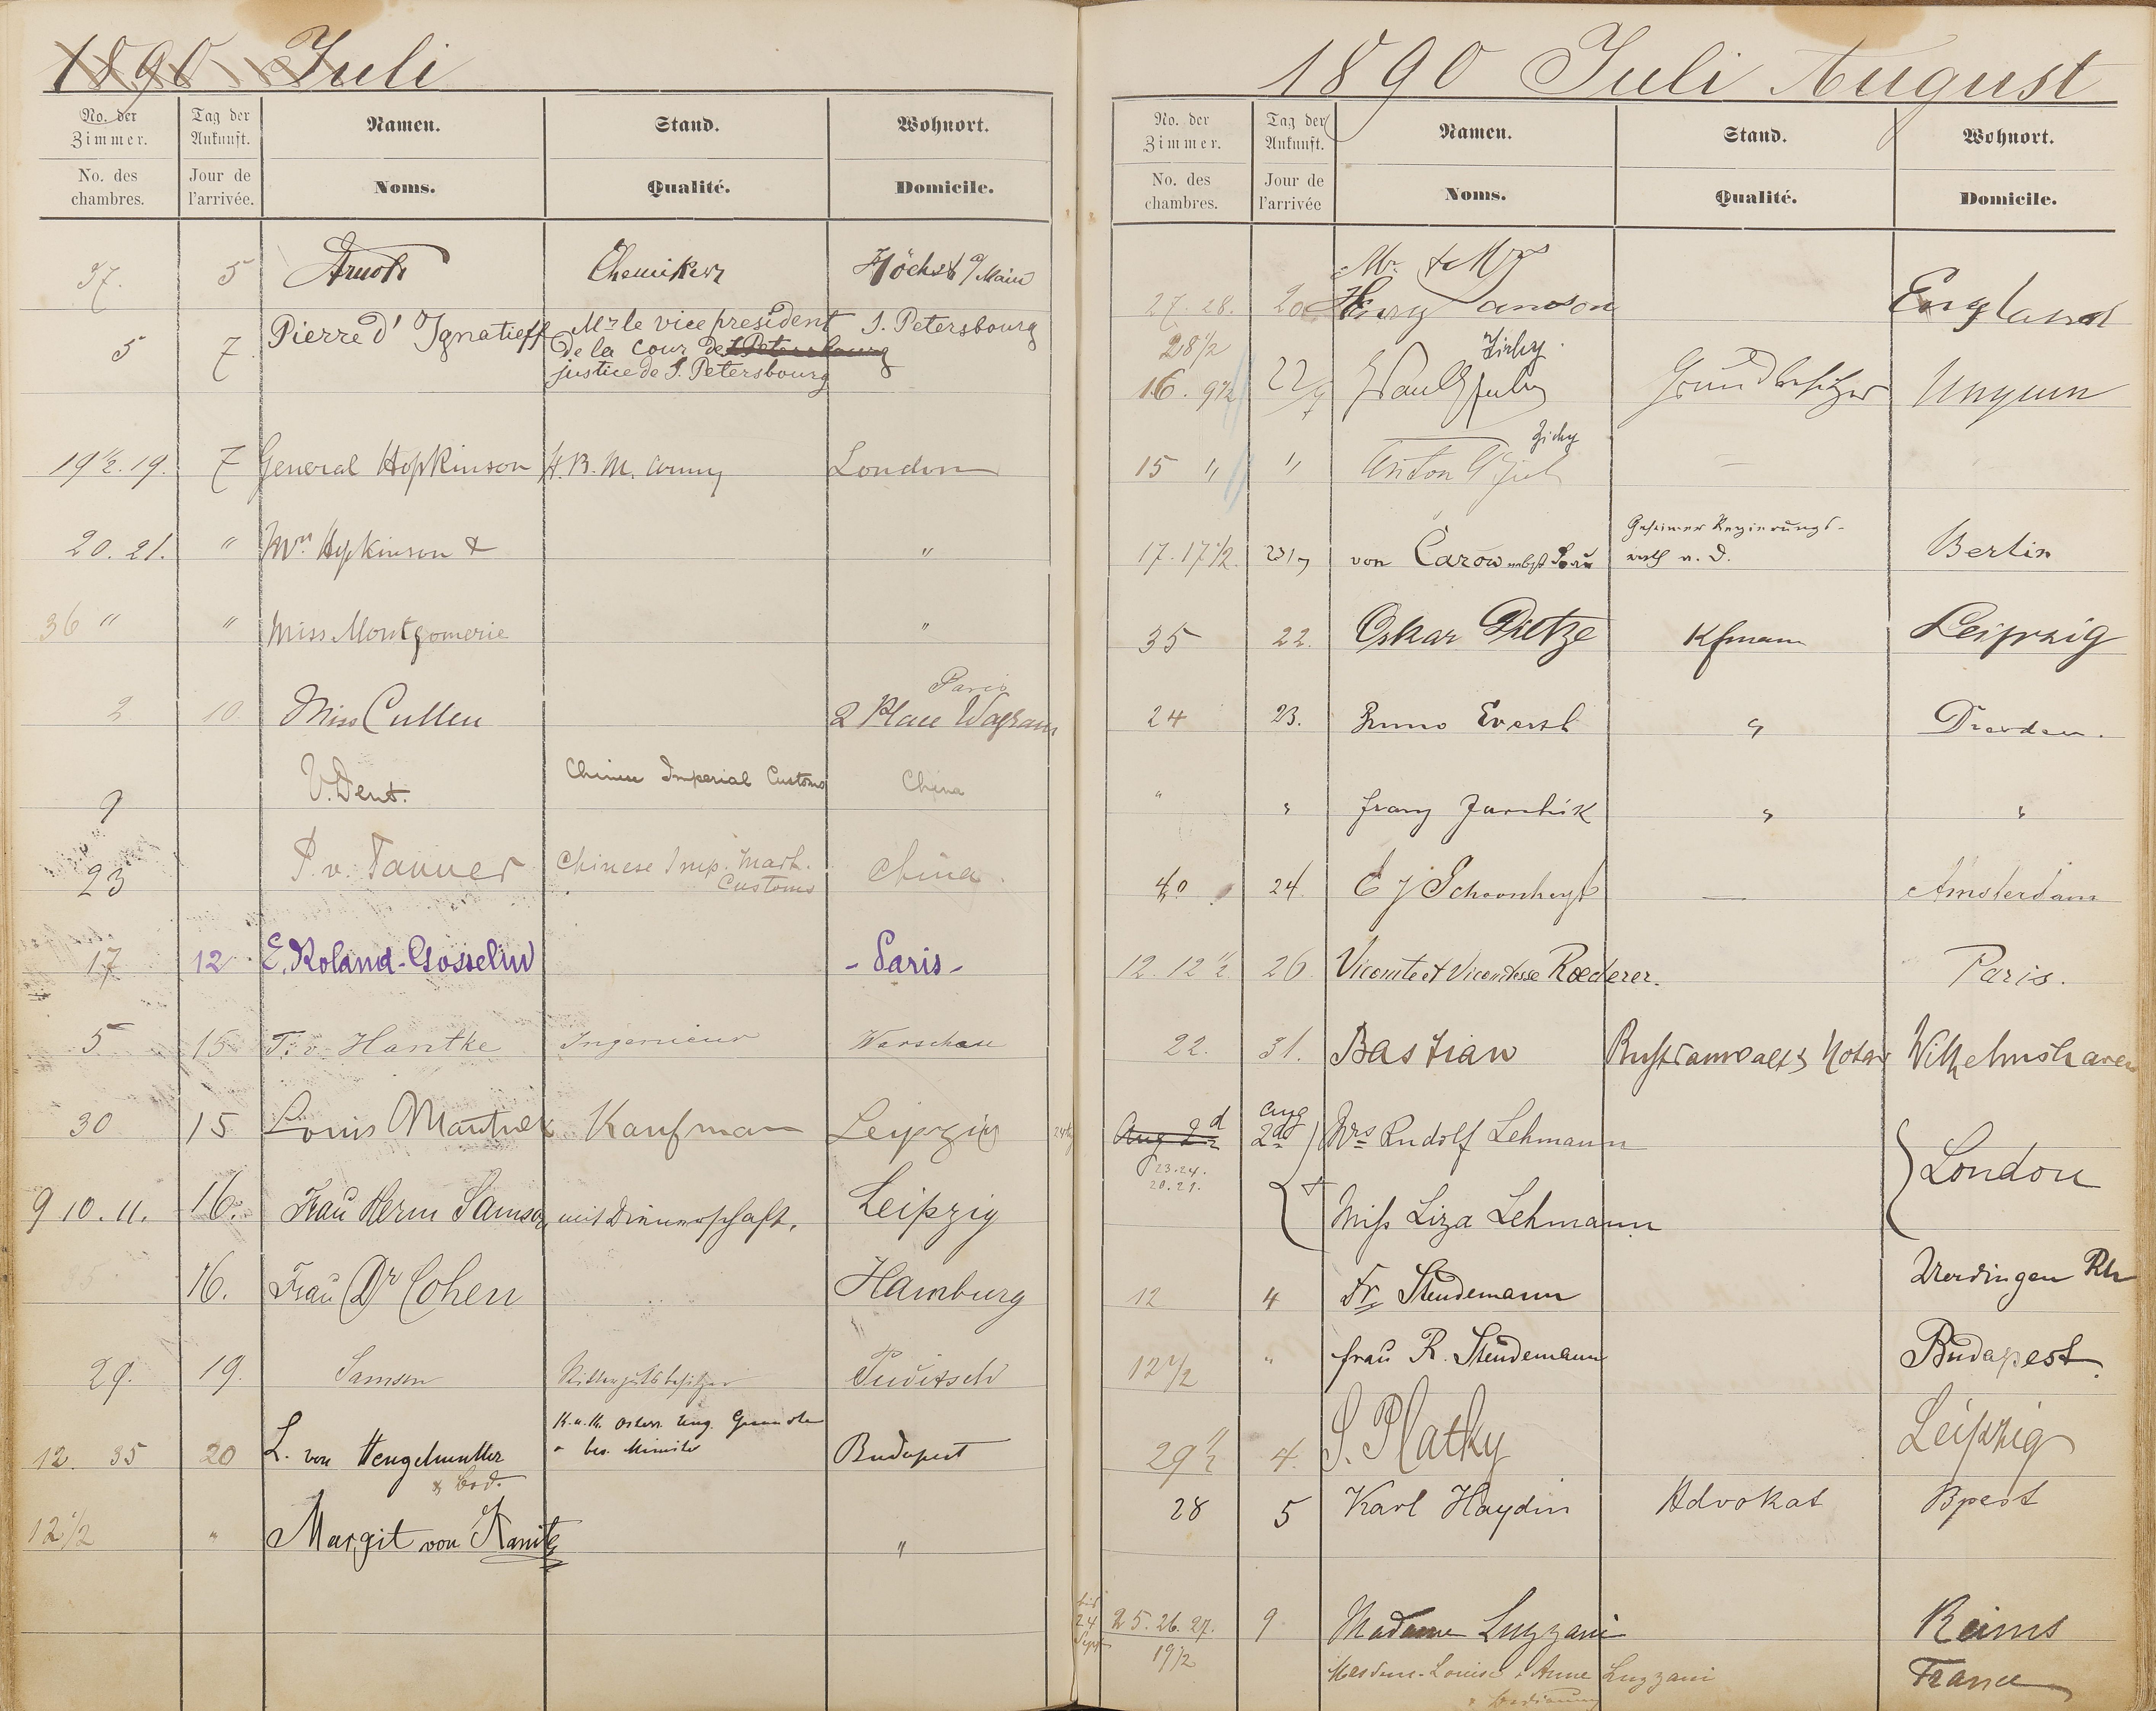 1890 Juli
No. der Zimmer. Tag der Ankunft. Namen. Stand. Wohnort.
No. des chambres. Jour de l'arrivée. Noms. Qualité. Domicile.
37. 5 Arnold Chemiker Höchst a/Main
5 7 Pierre d'Ignatieff Mr le vice president S. Petersbourg
de la Cour de S. Petersbourg
justice de S. Petersbourg
19 1/2. 19. 7 General Hopkinson H.B.M. Army London
20. 21. " Mrs. Hopkinson & "
36 " " Miss Montgomerie "
Paris
2 10 Miss Cullen 2 Place Wagram
9 V. Dent. Chinese Imperial Customs China
23 P. v. Tanner Chinese Imp. Marit. China.
Customs
17 12 E. Roland-Gosselin - Paris -
5 15 T. v. Hantke Ingenieur Warschau
30 15 Louis Mautner Kaufman Leipzig
9 10. 11. 16. Frau Herm Samson mit Dienerschaft. Leipzig
35 16. Frau Dr Cohen Hamburg
29. 19. Samson Rittergutsbesitzer
K. u. K. Osterr. Ung. Gesandter
12. 35 20 L. von Hengelmüller u. bev. Minister Budapest
& Bed.
12 1/2 " Margit von Kanitz "
1890 Juli August
No. der Zimmer. Tag der Ankunft. Namen. Stand. Wohnort.
No. des chambres. Jour de l'arrivée Noms. Qualité. Domicile.
Mr. & Mrs
27. 28. 20 Henry Samson England
28 1/2 Zichy
16. 9 1/2 22/7 Paul Grundbesitzer Ungarn
Zichy
15 " " Anton
Geheimer Regierungs-
17. 17 1/2. 23/7 von Carow nebst Frau rath a. D. Berlin
35 22. Oskar Dietze Kfmann Leipzig
24 23. Bruno Dresden.
" " Franz " "
40 24 Amsterdam
12. 12 1/2 26 Vicomte et Vicomtesse Rœderer. Paris.
22. 31. Bastian Rechtsanwalt & Notar Wilhelmshaven
Aug 2d Aug 2d Mrs Rudolf Lehmann
23. 24.
20. 21. London
& Miss Liza Lehmann
12 4 Fr. Steudemann Uerdingen Rh
12 1/2 " Frau R. Steudemann Budapest.
29 1/2 4. S. Plathy Leipzig
28 5 Karl Haydin Advokat Bpest
bis
24
Sept
25. 26. 27. 9 Madame Luzzani Reims
19 1/2
Louise & Anne Luzzani France
& Bedienung